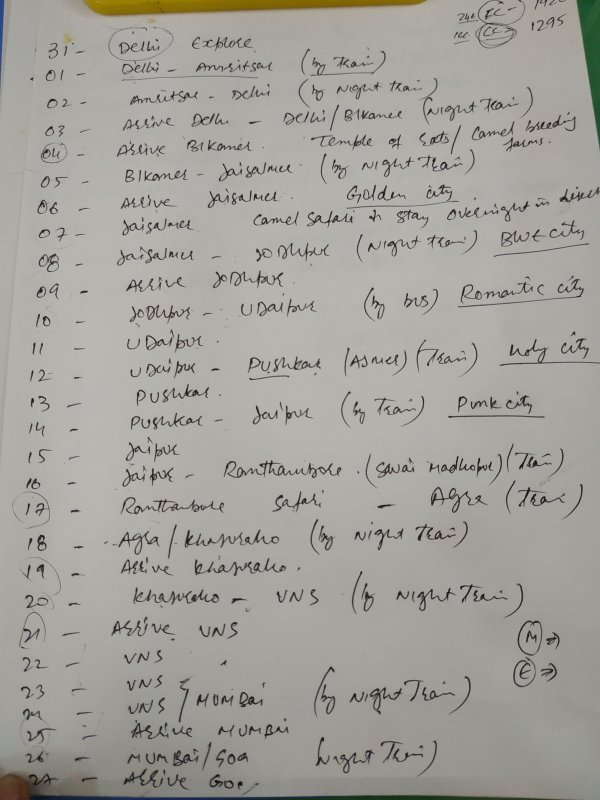 2AC EC -
1EC CC - 1295
31 - Delhi Explore
01 - Delhi - Amritsar (by Train)
02 - Amritsar - Delhi (by Night Train)
03 - Arrive Delhi - Delhi/BIkaner (Night Train)
04 - Arrive BIkaner. Temple of Rats/ Camel breeding farms.
05 - BIkaner - Jaisalmer (by Night Train)
06 - Arrive Jaisalmer. Golden city
07 - Jaisalmer Camel Safari & Stay overnight in desert
08 - Jaisalmer - JODHpur (Night Train) BLUE city
09 - Arrive JODHpur.
10 - JODHpur - UDaipur (by bus) Romantic city
11 - UDaipur.
12 - UDaipur - Pushkar (AJmer) (Train) Holy city
13 - Pushkar.
14 - Pushkar - Jaipur (by Train) Pink city
15 - Jaipur
16 - Jaipur - Ranthambore. (Sawai Madhopur) (Train)
17 - Ranthambore Safari - AGRA (Train)
18 - Agra/Khajuraho (by Night Train)
19 - Arrive Khajuraho.
20 - Khajuraho - VNS (by Night Train)
21 - Arrive VNS
22 - VNS
23 - VNS
24 - VNS / MUMBai (by Night Train)
25 - Arrive MUMBai
26 - MUMBai/Goa (Night Train)
27 - Arrive Goa
M ⇒
E ⇒